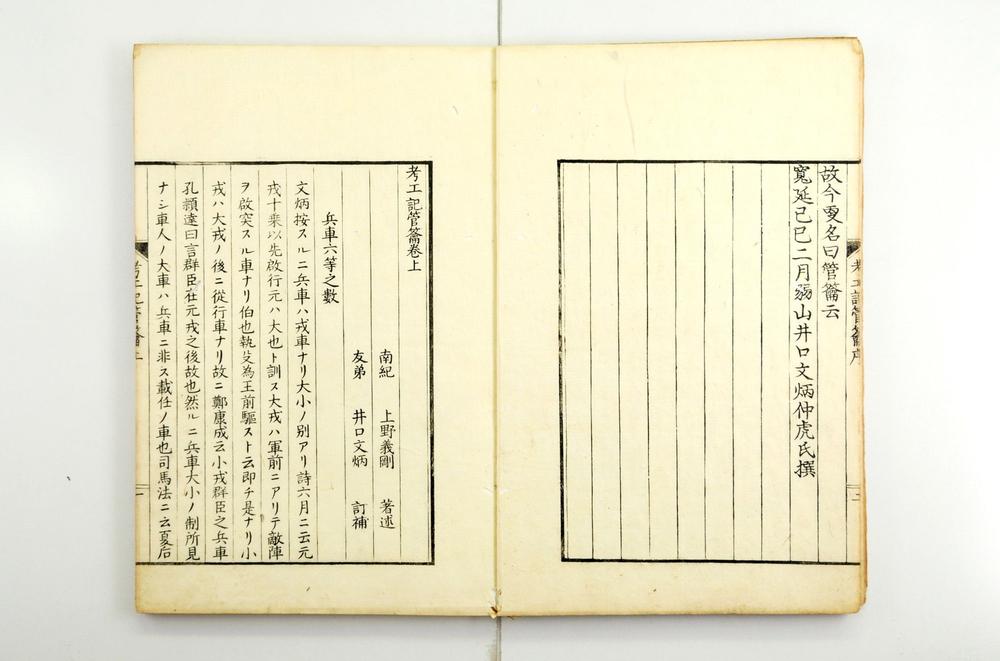 故今更名曰管籥云
寬延己巳二月弱山井口文炳仲虎氏撰
考工記管籥序
二
考工記管籥卷上
南紀 上野義剛 著述
友弟 井口文炳 訂補
兵車六等之數
文炳按スルニ兵車ハ戎車ナリ大小ノ別アリ詩六月ニ云元
戎十乗以先啟行元ハ大也ト訓ス大戎ハ軍前ニアリテ敵陣
ヲ啟突スル車ナリ伯也執殳為王前驅スト云即チ是ナリ小
戎ハ大戎ノ後ニ從行車ナリ故ニ鄭康成云小戎群臣之兵車
孔頴達曰言群臣在元戎之後故也然ルニ兵車大小ノ制所見
ナシ車人ノ大車ハ兵車ニ非ス載任ノ車也司馬法ニ云夏后
考工記管籥上
一